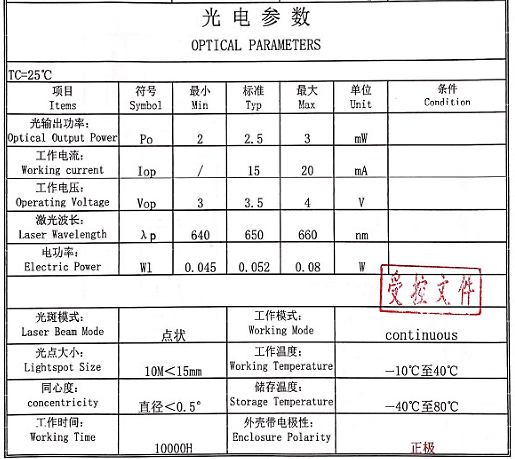 光电参数
OPTICAL PARAMETERS
TC=25℃
项目 符号 最小 标准 最大 单位 条件
Items Symbol Min Typ Max Unit Condition
光输出功率:
Optical Output Power Po 2 2.5 3 mW
工作电流:
Working current Iop / 15 20 mA
工作电压:
Operating Voltage Vop 3 3.5 4 V
激光波长:
Laser Wavelength λp 640 650 660 nm
电功率:
Electric Power Wl 0.045 0.052 0.08 W
受控文件
光斑模式: 工作模式:
Laser Beam Mode 点状 Working Mode continuous
光点大小: 工作温度:
Lightspot Size 10M<15mm Working Temperature -10℃至40℃
同心度: 储存温度:
concentricity 直径<0.5° Storage Temperature -40℃至80℃
工作时间: 外壳带电极性:
Working Time 10000H Enclosure Polarity 正极